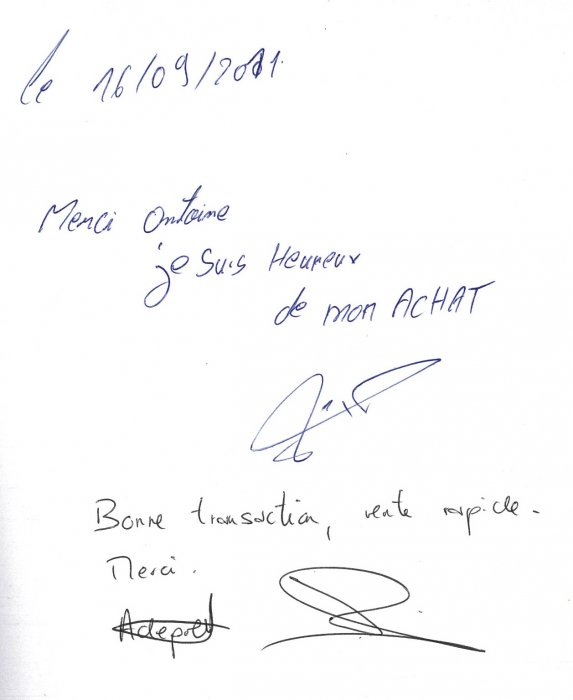 le 16/09/2011.
Merci Antoine
je suis Heureux
de mon ACHAT
Bonne transaction, vente rapide.
Merci.